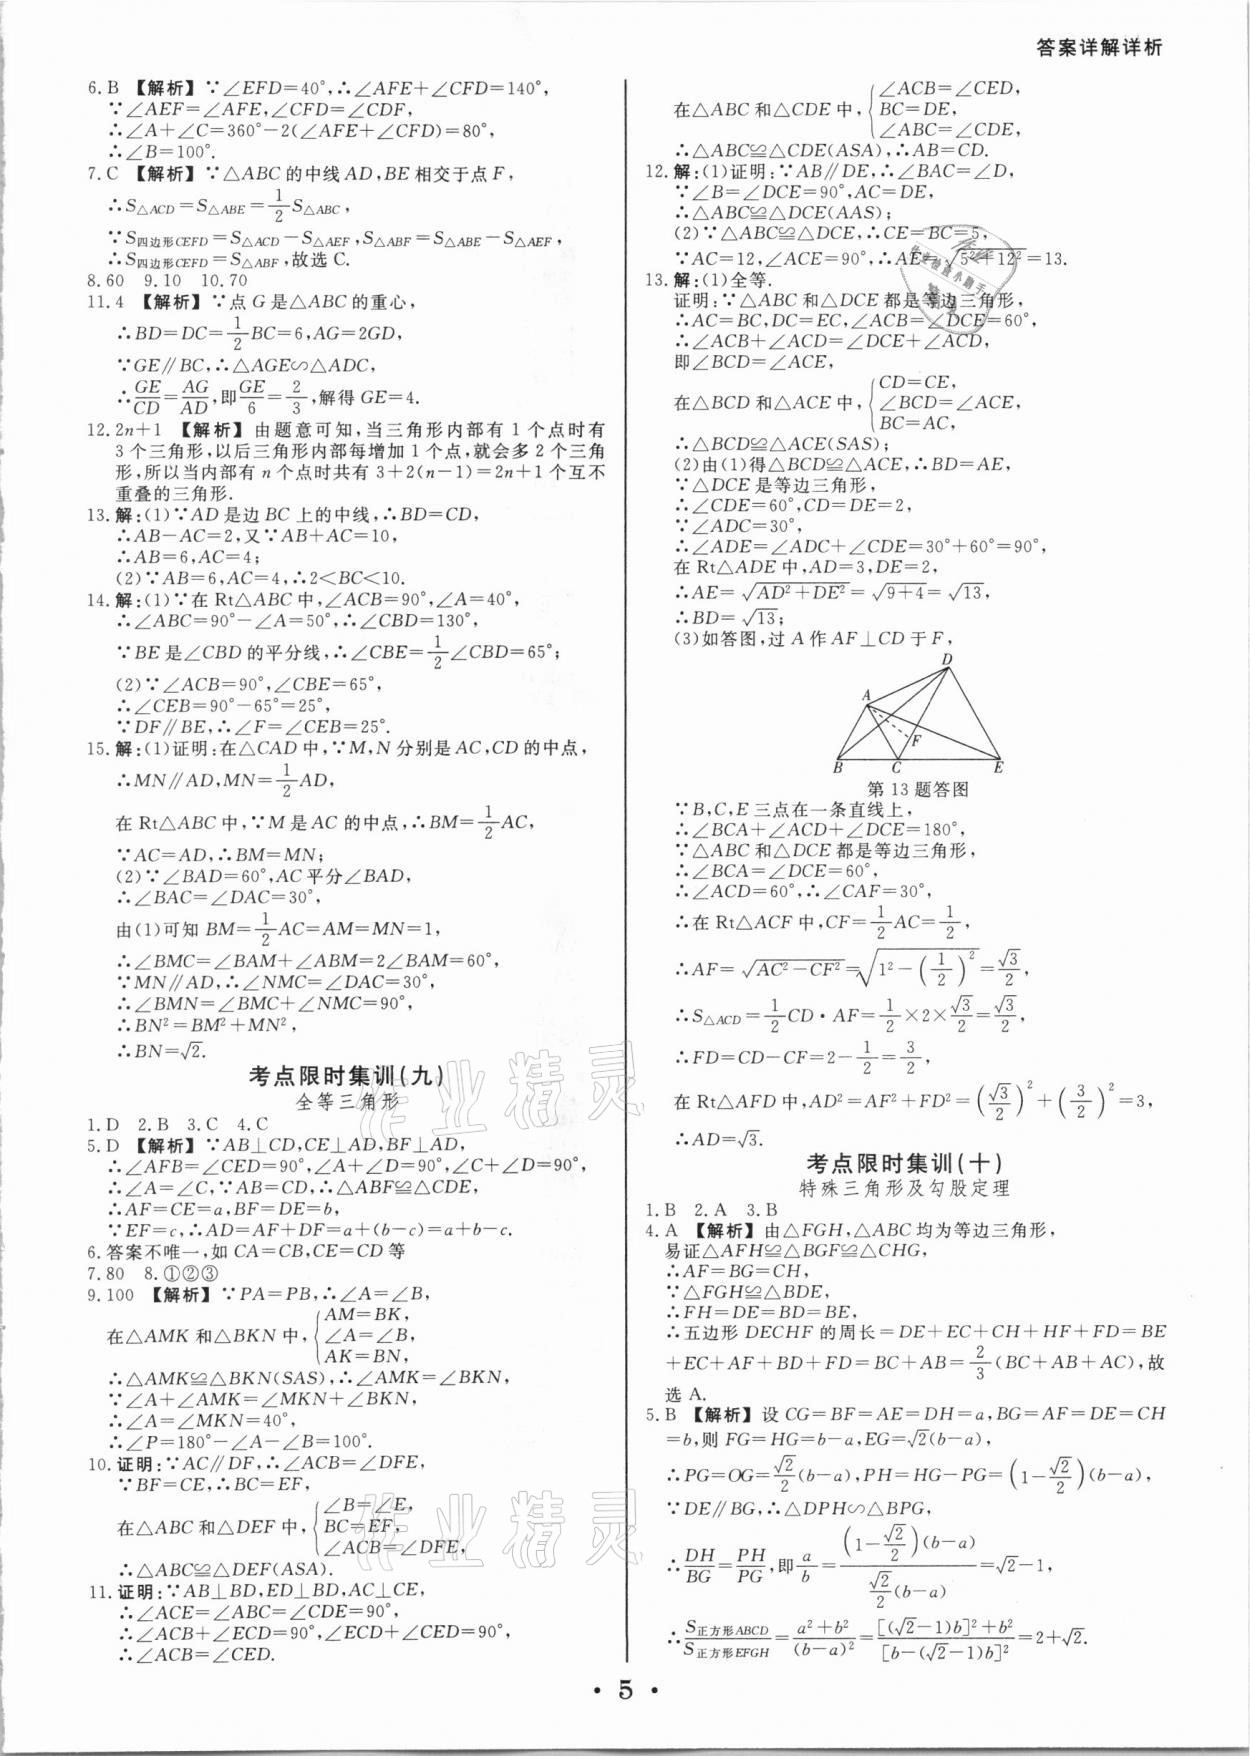 答案详解详析
6.B 【解析】∵∠EFD=40°,∴∠AFE+∠CFD=140°,
∵∠AEF=∠AFE,∠CFD=∠CDF,
∴∠A+∠C=360°-2(∠AFE+∠CFD)=80°,
∴∠B=100°.
7.C 【解析】∵△ABC的中线AD,BE相交于点F,
∴S△ACD=S△ABE=1/2S△ABC,
∵S四边形CEFD=S△ACD-S△AEF,S△ABF=S△ABE-S△AEF,
∴S四边形CEFD=S△ABF,故选C.
8.60 9.10 10.70
11.4 【解析】∵点G是△ABC的重心,
∴BD=DC=1/2BC=6,AG=2GD,
∵GE∥BC,∴△AGE∽△ADC,
∴GE/CD=AG/AD,即GE/6=2/3,解得GE=4.
12.2n+1 【解析】由题意可知,当三角形内部有1个点时有
3个三角形,以后三角形内部每增加1个点,就会多2个三角
形,所以当内部有n个点时共有3+2(n-1)=2n+1个互不
重叠的三角形.
13.解:(1)∵AD是边BC上的中线,∴BD=CD,
∴AB-AC=2,又∵AB+AC=10,
∴AB=6,AC=4;
(2)∵AB=6,AC=4,∴2<BC<10.
14.解:(1)∵在Rt△ABC中,∠ACB=90°,∠A=40°,
∴∠ABC=90°-∠A=50°,∴∠CBD=130°,
∵BE是∠CBD的平分线,∴∠CBE=1/2∠CBD=65°;
(2)∵∠ACB=90°,∠CBE=65°,
∴∠CEB=90°-65°=25°,
∵DF∥BE,∴∠F=∠CEB=25°.
15.解:(1)证明:在△CAD中,∵M,N分别是AC,CD的中点,
∴MN∥AD,MN=1/2AD,
在Rt△ABC中,∵M是AC的中点,∴BM=1/2AC,
∵AC=AD,∴BM=MN;
(2)∵∠BAD=60°,AC平分∠BAD,
∴∠BAC=∠DAC=30°,
由(1)可知BM=1/2AC=AM=MN=1,
∴∠BMC=∠BAM+∠ABM=2∠BAM=60°,
∵MN∥AD,∴∠NMC=∠DAC=30°,
∴∠BMN=∠BMC+∠NMC=90°,
∴BN²=BM²+MN²,
∴BN=√2.
考点限时集训(九)
全等三角形
1.D 2.B 3.C 4.C
5.D 【解析】∵AB⊥CD,CE⊥AD,BF⊥AD,
∴∠AFB=∠CED=90°,∠A+∠D=90°,∠C+∠D=90°,
∴∠A=∠C,∵AB=CD,∴△ABF≌△CDE,
∴AF=CE=a,BF=DE=b,
∵EF=c,∴AD=AF+DF=a+(b-c)=a+b-c.
6.答案不唯一,如CA=CB,CE=CD等
7.80 8.①②③
9.100 【解析】∵PA=PB,∴∠A=∠B,
在△AMK和△BKN中,{AM=BK,
∠A=∠B,
AK=BN,
∴△AMK≌△BKN(SAS),∴∠AMK=∠BKN,
∵∠A+∠AMK=∠MKN+∠BKN,
∴∠A=∠MKN=40°,
∴∠P=180°-∠A-∠B=100°.
10.证明:∵AC∥DF,∴∠ACB=∠DFE,
∵BF=CE,∴BC=EF,
在△ABC和△DEF中,{∠B=∠E,
BC=EF,
∠ACB=∠DFE,
∴△ABC≌△DEF(ASA).
11.证明:∵AB⊥BD,ED⊥BD,AC⊥CE,
∴∠ACE=∠ABC=∠CDE=90°,
∴∠ACB+∠ECD=90°,∠ECD+∠CED=90°,
∴∠ACB=∠CED.
在△ABC和△CDE中,{∠ACB=∠CED,
BC=DE,
∠ABC=∠CDE,
∴△ABC≌△CDE(ASA),∴AB=CD.
12.解:(1)证明:∵AB∥DE,∴∠BAC=∠D,
∵∠B=∠DCE=90°,AC=DE,
∴△ABC≌△DCE(AAS);
(2)∵△ABC≌△DCE,∴CE=BC=5,
∵AC=12,∠ACE=90°,∴AE=√(5²+12²)=13.
13.解:(1)全等.
证明:∵△ABC和△DCE都是等边三角形,
∴AC=BC,DC=EC,∠ACB=∠DCE=60°,
∴∠ACB+∠ACD=∠DCE+∠ACD,
即∠BCD=∠ACE,
在△BCD和△ACE中,{CD=CE,
∠BCD=∠ACE,
BC=AC,
∴△BCD≌△ACE(SAS);
(2)由(1)得△BCD≌△ACE,∴BD=AE,
∵△DCE是等边三角形,
∴∠CDE=60°,CD=DE=2,
∵∠ADC=30°,
∴∠ADE=∠ADC+∠CDE=30°+60°=90°,
在Rt△ADE中,AD=3,DE=2,
∴AE=√(AD²+DE²)=√(9+4)=√13,
∴BD=√13;
(3)如答图,过A作AF⊥CD于F,
D
A
F
B C E
第13题答图
∵B,C,E三点在一条直线上,
∴∠BCA+∠ACD+∠DCE=180°,
∵△ABC和△DCE都是等边三角形,
∴∠BCA=∠DCE=60°,
∴∠ACD=60°,∴∠CAF=30°,
∴在Rt△ACF中,CF=1/2AC=1/2,
∴AF=√(AC²-CF²)=√(1²-(1/2)²)=√3/2,
∴S△ACD=1/2CD·AF=1/2×2×√3/2=√3/2,
∴FD=CD-CF=2-1/2=3/2,
在Rt△AFD中,AD²=AF²+FD²=(√3/2)²+(3/2)²=3,
∴AD=√3.
考点限时集训(十)
特殊三角形及勾股定理
1.B 2.A 3.B
4.A 【解析】由△FGH,△ABC均为等边三角形,
易证△AFH≌△BGF≌△CHG,
∴AF=BG=CH,
∵△FGH≌△BDE,
∴FH=DE=BD=BE,
∴五边形DECHF的周长=DE+EC+CH+HF+FD=BE
+EC+AF+BD+FD=BC+AB=2/3(BC+AB+AC),故
选A.
5.B 【解析】设CG=BF=AE=DH=a,BG=AF=DE=CH
=b,则FG=HG=b-a,EG=√2(b-a),
∴PG=OG=√2/2(b-a),PH=HG-PG=(1-√2/2)(b-a),
∵DE∥BG,∴△DPH∽△BPG,
∴DH/BG=PH/PG,即a/b=(1-√2/2)(b-a)/(√2/2(b-a))=√2-1,
∴S正方形ABCD/S正方形EFGH=(a²+b²)/(b-a)²=([(√2-1)b]²+b²)/[b-(√2-1)b]²=2+√2.
· 5 ·
作业精灵
作业精灵